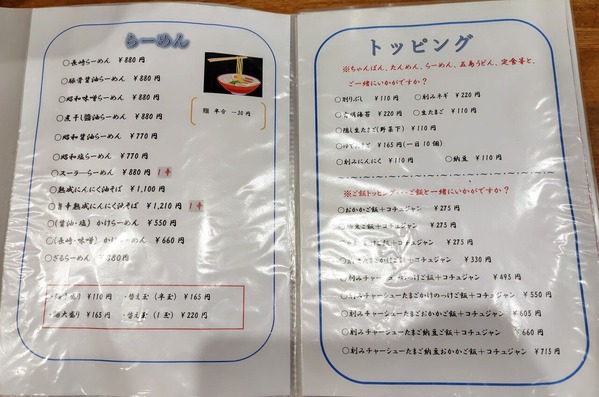 らーめん
○長崎らーめん ¥880円
○豚骨醤油らーめん ¥880円
○昭和味噌らーめん ¥880円
○煮干し醤油らーめん ¥880円
○昭和醤油らーめん ¥770円
○昭和塩らーめん ¥770円
○スーラーらーめん ¥880円 1辛
○熟成にんにく油そば ¥1,100円
○旨辛熟成にんにく油そば ¥1,210円 1辛
○(醤油・塩) かけらーめん ¥550円
○(長崎・味噌) かけらーめん ¥660円
○ざるらーめん
麺 半分 −30円
¥110円 ・替え玉 (半玉) ¥165円
・麺大盛り ¥165円 ・替え玉 (1玉) ¥220円
トッピング
※ちゃんぽん、たんめん、らーめん、五島うどん、定食等と、
ご一緒にいかがですか?
○削りぶし ¥110円 ○刻みネギ ¥220円
○有明海苔 ¥220円 ○生たまご ¥110円
○隠し生たまご(野菜下) ¥110円
○ゆでたまご ¥165円(一日10個)
○刻みにんにく ¥110円 ○納豆 ¥110円
※ご飯トッピング・・・ご飯と一緒にいかがですか?
○おかかご飯+コチュジャン ¥275円
ご飯+コチュジャン ¥275円
ご飯+コチュジャン ¥275円
ご飯+コチュジャン ¥330円
○刻みチャーシューのっけご飯+コチュジャン ¥495円
○刻みチャーシューたまごかけのっけご飯+コチュジャン ¥550円
○刻みチャーシューたまごおかかご飯+コチュジャン ¥605円
○刻みチャーシューたまご納豆ご飯+コチュジャン ¥660円
○刻みチャーシューたまご納豆おかかご飯+コチュジャン ¥715円